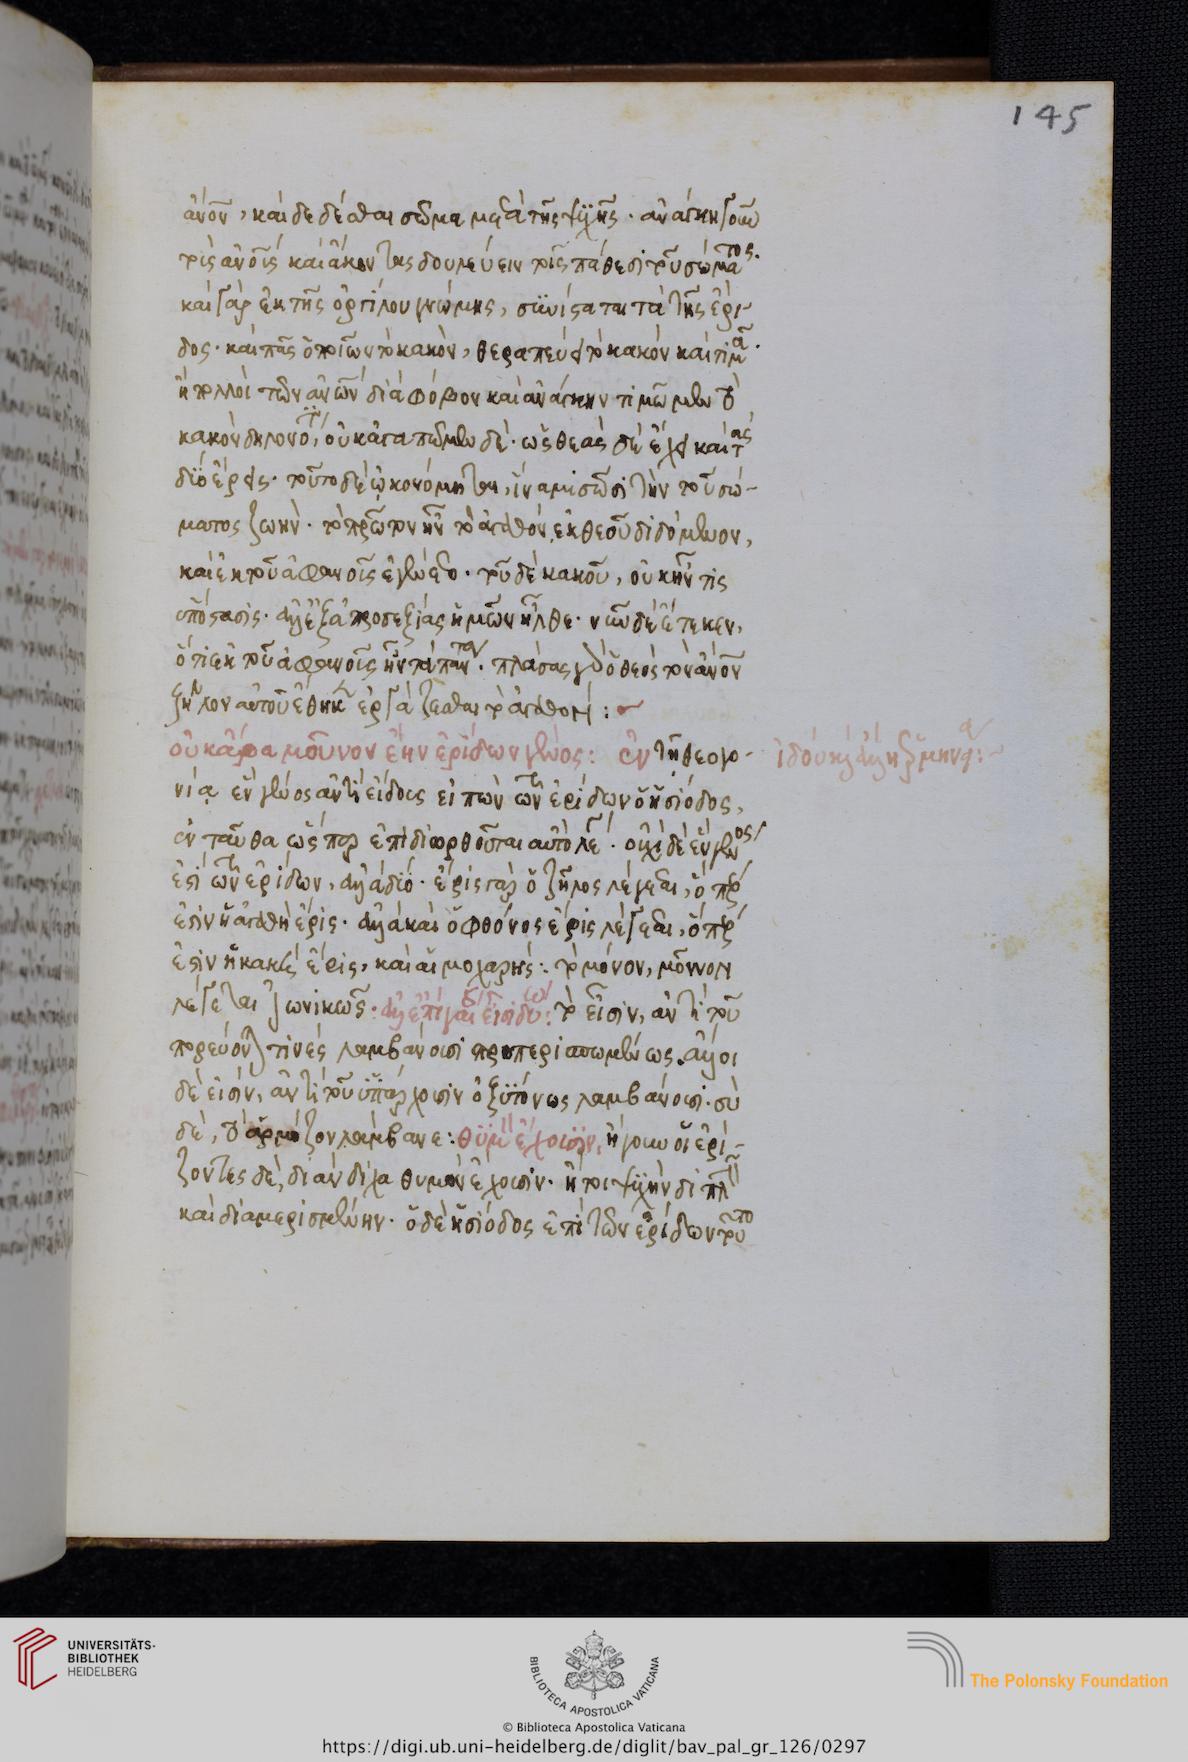 145
ἄνον, καὶ δεδέσθαι σῶμα μετὰ τῆς ψυχῆς. ἀνάγκη γοῦν
τοῖς ἀνοις καὶ ἄκοντας δουλεύειν τοῖς πάθεσι τοῦ σώματος.
καὶ γὰρ ἐκ τῆς ὀργίλου γνώμης, συνίσταται τὰ τῆς ἔρι-
δος. καὶ πᾶς ὁ ποιῶν τὸ κακὸν, θεραπεύει τὸ κακὸν καὶ τιμᾶ.
ἢ πολλοὶ τῶν ἀνων διὰ φόβον καὶ ἀνάγκην τιμῶμεν τὸ
κακὸν δηλονότι, οὐκ ἀγαπῶμεν δέ. ὡς θεὰς δὲ ἔχει καὶ τὰς
δύο ἔρεις. τοῦτο δὲ ὠκονόμηται, ἵνα μισῶσι τὴν τοῦ σώ-
ματος ζωήν. τὸ πρῶτον ἦν τὸ ἀγαθὸν, ἐκ θεοῦ διδόμενον,
καὶ ἐκ τοῦ ἀφανοῦς ἐγένετο. τοῦ δὲ κακοῦ, οὐκ ἦν τις
ὑπόστασις. ἀλλ' ἐξ ἀπροσεξίας ἡμῶν ἦλθε. νὺξ δὲ ἔτεκεν,
ὅτι ἐκ τοῦ ἀφανοῦς ἦν τὰ πάντα. πλάσας γὰρ ὁ θεὸς τὸν ἄνον
ζῆλον αὐτοῦ ἔθηκεν ἐργάζεσθαι τὸ ἀγαθόν:
οὐκ ἄρα μοῦνον ἔην ἐρίδων γένος: ἐν τῇ θεογο-
νίᾳ ἓν γένος ἀντὶ εἶδος εἰπὼν τῶν ἐρίδων ὁ ἡσίοδος,
ἐνταῦθα ὥσπερ ἐπιδιορθοῦται αὐτὸ λέγων. οὐχὶ δὲ ἓν γένος
ἐστὶ τῶν ἐρίδων, ἀλλὰ δύο. ἔρις γὰρ ὁ ζῆλος λέγεται, ὅπερ
ἐστὶν ἡ ἀγαθὴ ἔρις. ἀλλὰ καὶ ὁ φθόνος ἔρις λέγεται, ὅπερ
ἐστὶν ἡ κακὴ ἔρις, καὶ αἱμοχαρής: τὸ μόνον, μοῦνον
λέγεται ἰωνικῶς. ἀλλ' ἐπὶ γαῖαν εἰσὶ δύω: τὸ εἶσιν, ἀντὶ τοῦ
πορεύονται τινὲς λαμβάνουσι προπερισπωμένως. ἄλλοι
δὲ εἰσὶν, ἀντὶ τοῦ ὑπάρχουσιν ὀξυτόνως λαμβάνουσι. σὺ
δὲ, τὸ ἁρμόζον λάμβανε: θυμὸν ἔχουσιν, ἤγουν οἱ ἐρί-
ζοντες δὲ, διάνδιχα θυμὸν ἔχουσιν. ἤτοι ψυχὴν διπλῆν
καὶ διαμερισμένην. ὁ δὲ ἡσίοδος ἐπὶ τῶν ἐρίδων τοῦτο
UNIVERSITÄTS-
BIBLIOTHEK
HEIDELBERG
BIBLIOTECA APOSTOLICA VATICANA
The Polonsky Foundation
© Biblioteca Apostolica Vaticana
https://digi.ub.uni-heidelberg.de/diglit/bav_pal_gr_126/0297